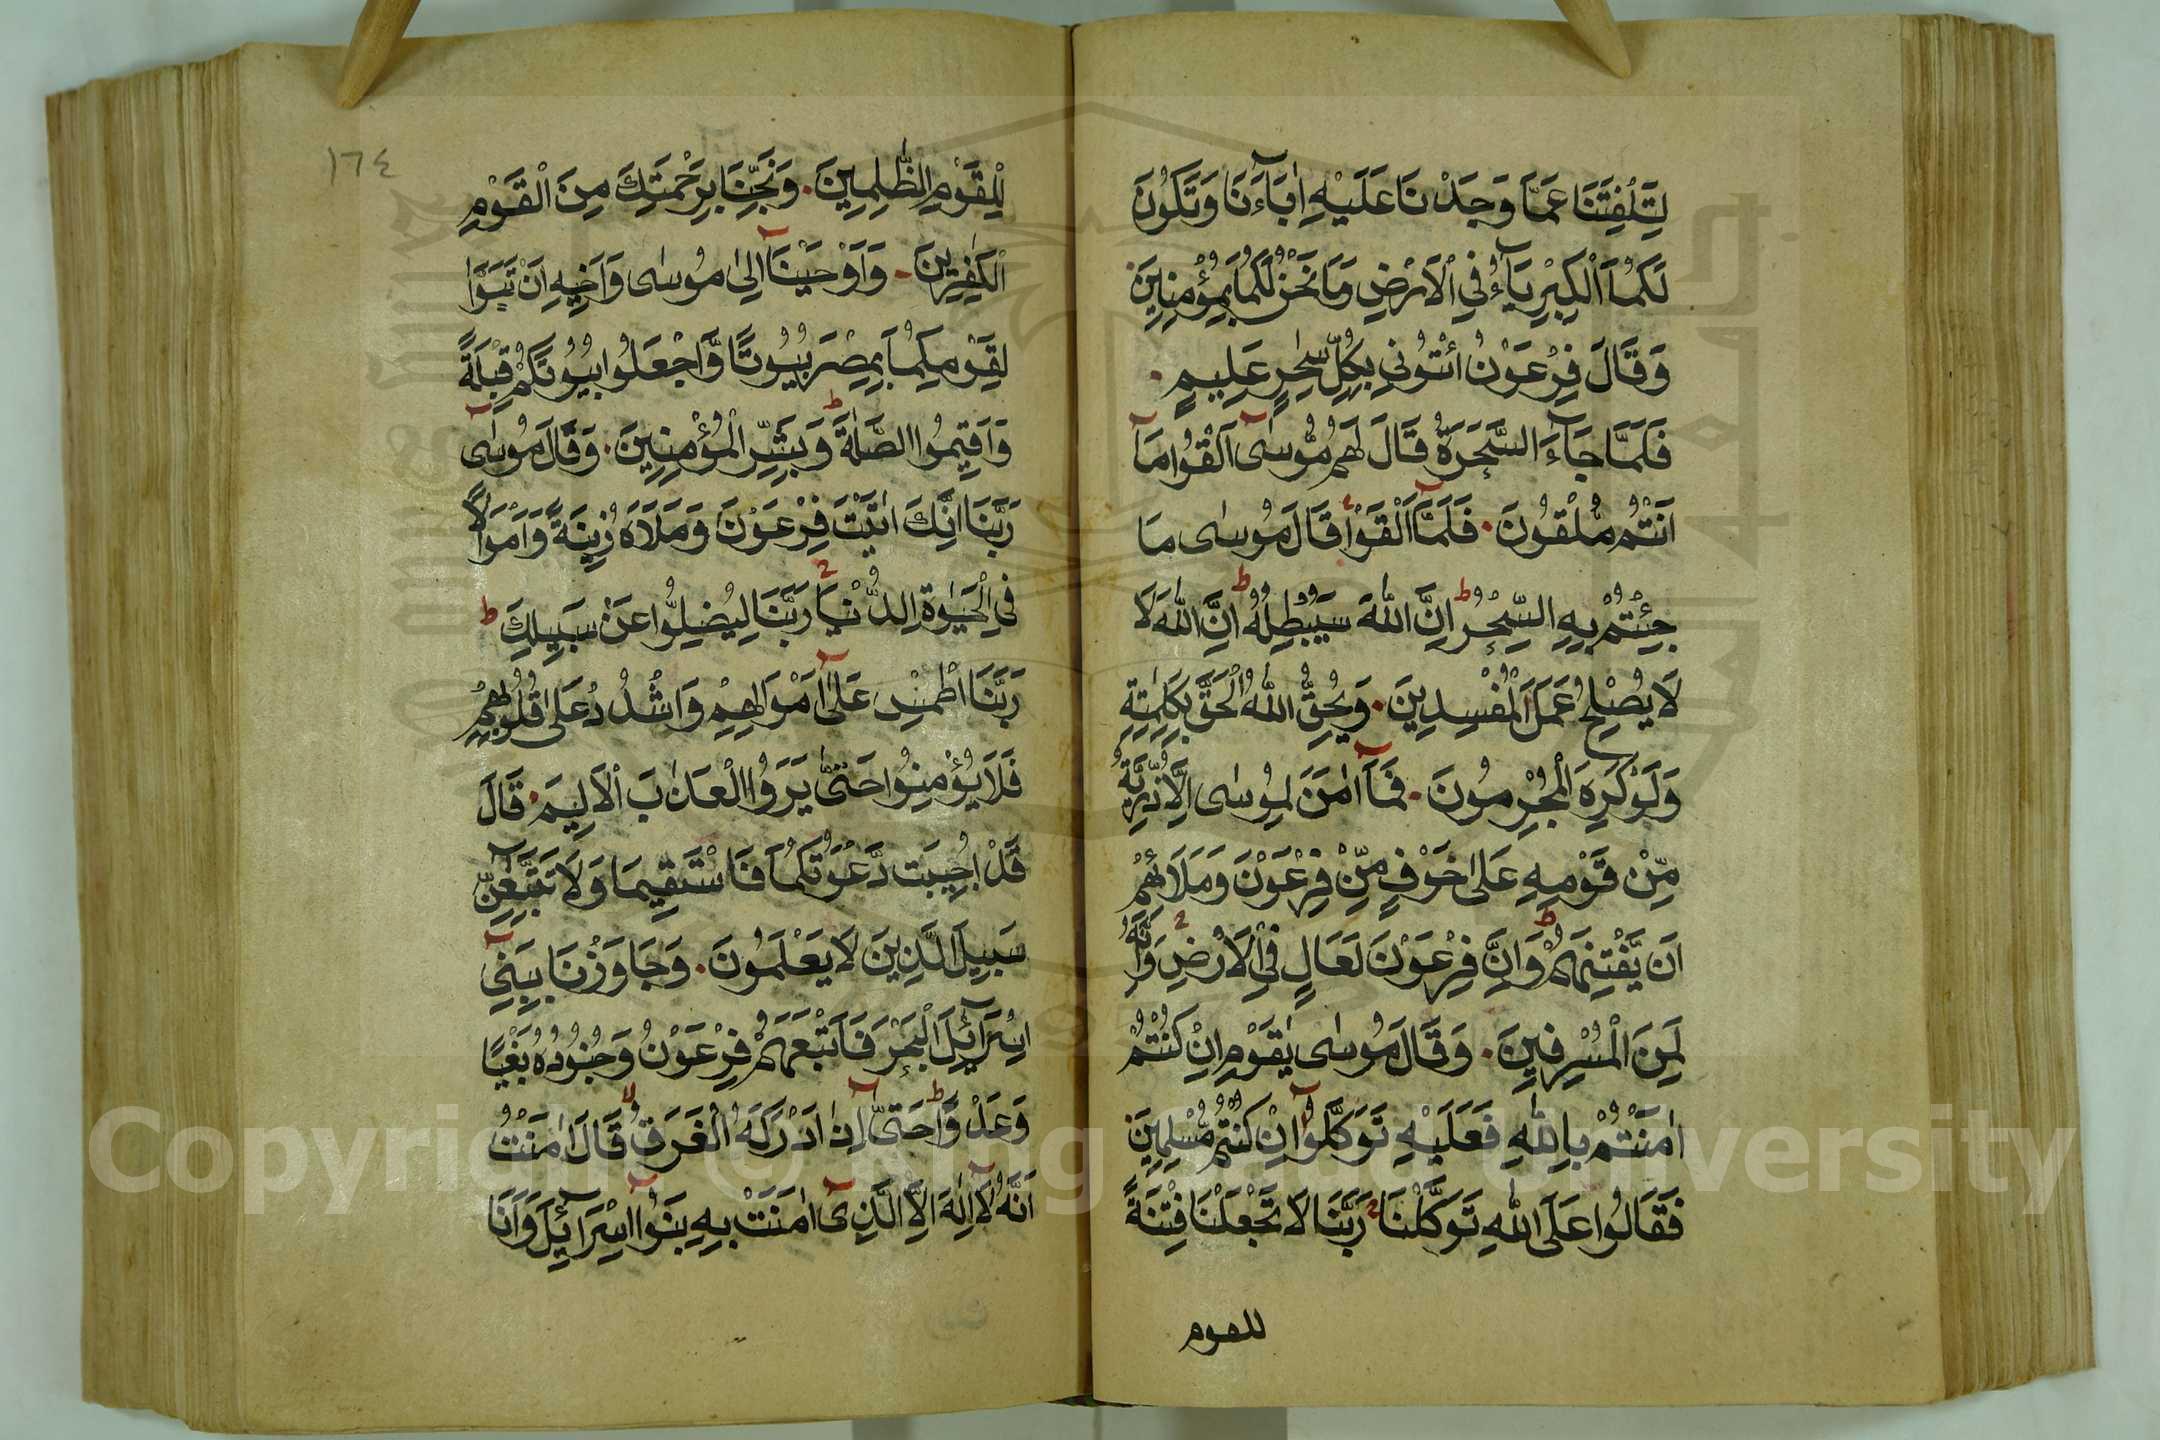 لِتَلْفِتَنَا عَمَّا وَجَدْنَا عَلَيْهِ اٰبَآءَنَا وَتَكُوْنَ
لَكُمَا الْكِبْرِيَآءُ فِي الْاَرْضِ وَمَا نَحْنُ لَكُمَا بِمُؤْمِنِيْنَ
وَقَالَ فِرْعَوْنُ ائْتُونِي بِكُلِّ سٰحِرٍ عَلِيمٍ
فَلَمَّا جَآءَ السَّحَرَةُ قَالَ لَهُمْ مُّوْسٰى اَلْقُوْا مَآ
اَنْتُمْ مُّلْقُوْنَ فَلَمَّآ اَلْقَوْا قَالَ مُوسٰى مَا
جِئْتُمْ بِهِ السِّحْرُ ط اِنَّ اللّٰهَ سَيُبْطِلُهُ ط اِنَّ اللّٰهَ لَا
لَا يُصْلِحُ عَمَلَ الْمُفْسِدِينَ وَيُحِقُّ اللّٰهُ الْحَقَّ بِكَلِمٰتِهِ
وَلَوْ كَرِهَ الْمُجْرِمُونَ فَمَآ اٰمَنَ لِمُوسٰى اِلَّا ذُرِّيَّةٌ
مِّنْ قَوْمِهِ عَلٰى خَوْفٍ مِّنْ فِرْعَوْنَ وَمَلَا۟ئِهِمْ
اَن يَّفْتِنَهُمْ ط وَاِنَّ فِرْعَوْنَ لَعَالٍ فِي الْاَرْضِ وَاِنَّهُ
لَمِنَ الْمُسْرِفِينَ وَقَالَ مُوسٰى يٰقَوْمِ اِنْ كُنْتُمْ
اٰمَنْتُمْ بِاللّٰهِ فَعَلَيْهِ تَوَكَّلُوْآ اِنْ كُنْتُمْ مُّسْلِمِينَ
فَقَالُوا عَلَى اللّٰهِ تَوَكَّلْنَا رَبَّنَا لَا تَجْعَلْنَا فِتْنَةً
للقوم
١٦٤
لِلْقَوْمِ الظّٰلِمِينَ وَنَجِّنَا بِرَحْمَتِكَ مِنَ الْقَوْمِ
الْكٰفِرِينَ وَاَوْحَيْنَآ اِلٰى مُوسٰى وَاَخِيهِ اَنْ تَبَوَّاٰ
لِقَوْمِكُمَا بِمِصْرَ بُيُوتًا وَّاجْعَلُوا بُيُوتَكُمْ قِبْلَةً
وَاَقِيمُوا الصَّلٰوةَ ط وَبَشِّرِ الْمُؤْمِنِينَ وَقَالَ مُوسٰى
رَبَّنَا اِنَّكَ اٰتَيْتَ فِرْعَوْنَ وَمَلَاَهُ زِينَةً وَاَمْوَالًا
فِي الْحَيٰوةِ الدُّنْيَا رَبَّنَا لِيُضِلُّوا عَنْ سَبِيلِكَ ط
رَبَّنَا اطْمِسْ عَلٰٓى اَمْوَالِهِمْ وَاشْدُدْ عَلٰى قُلُوبِهِمْ
فَلَا يُؤْمِنُوا حَتّٰى يَرَوُا الْعَذَابَ الْاَلِيمَ قَالَ
قَدْ اُجِيبَت دَّعْوَتُكُمَا فَاسْتَقِيمَا وَلَا تَتَّبِعٰٓنِّ
سَبِيلَ الَّذِينَ لَا يَعْلَمُونَ وَجَاوَزْنَا بِبَنِيٓ
اِسْرَآئِلَ الْبَحْرَ فَاَتْبَعَهُمْ فِرْعَوْنُ وَجُنُودُهُ بَغْيًا
وَعَدْوًا ط حَتّٰىٓ اِذَا اَدْرَكَهُ الْغَرَقُ لا قَالَ اٰمَنْتُ
اَنَّهُ لَآ اِلٰهَ اِلَّا الَّذِيٓ اٰمَنَتْ بِهِ بَنُوْآ اِسْرَآئِلَ وَاَنَا
Copyright © King Saud University